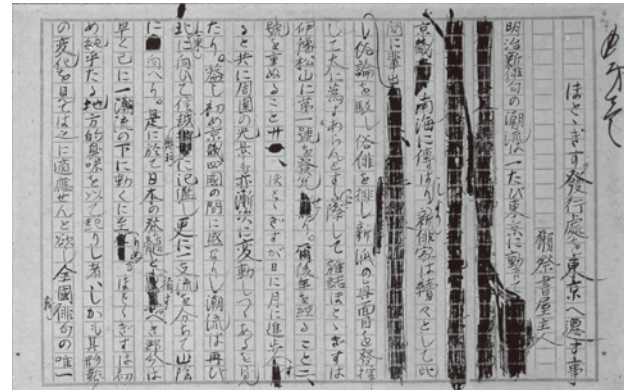 ほとゝぎす發行處を東京へ遷す事
獺祭書屋主人
明治新俳句の潮流は一たび東京に動きて
京 南海に傳はり新俳家は續々として此
間に輩出
し俗論を駁し俗俳を排し新派の眞面目を發揮
して大に爲すあらんとするに際して雜誌ほとゝぎすは
伊豫松山に第一號を發せり。爾後年を經ること二、
號を重ぬること廿 、ほとゝぎすが日に月に進歩
ると共に周圍の光景も亦漸次に変動しつゝあるを見
たり。蓋し初め京 四國の間に盛なりし潮流は再び
北に向ひて信越 に氾濫し更に一支流を分ちて山陰
に向へり。是に於て日本の 部分は
早く已に一潮流の下に動くに至 ほとゝぎすは初
め純乎たる地方的臭味を以て起りし者、しかも其形勢
の変化を見ては之に適應せんと欲し全國俳句の唯一